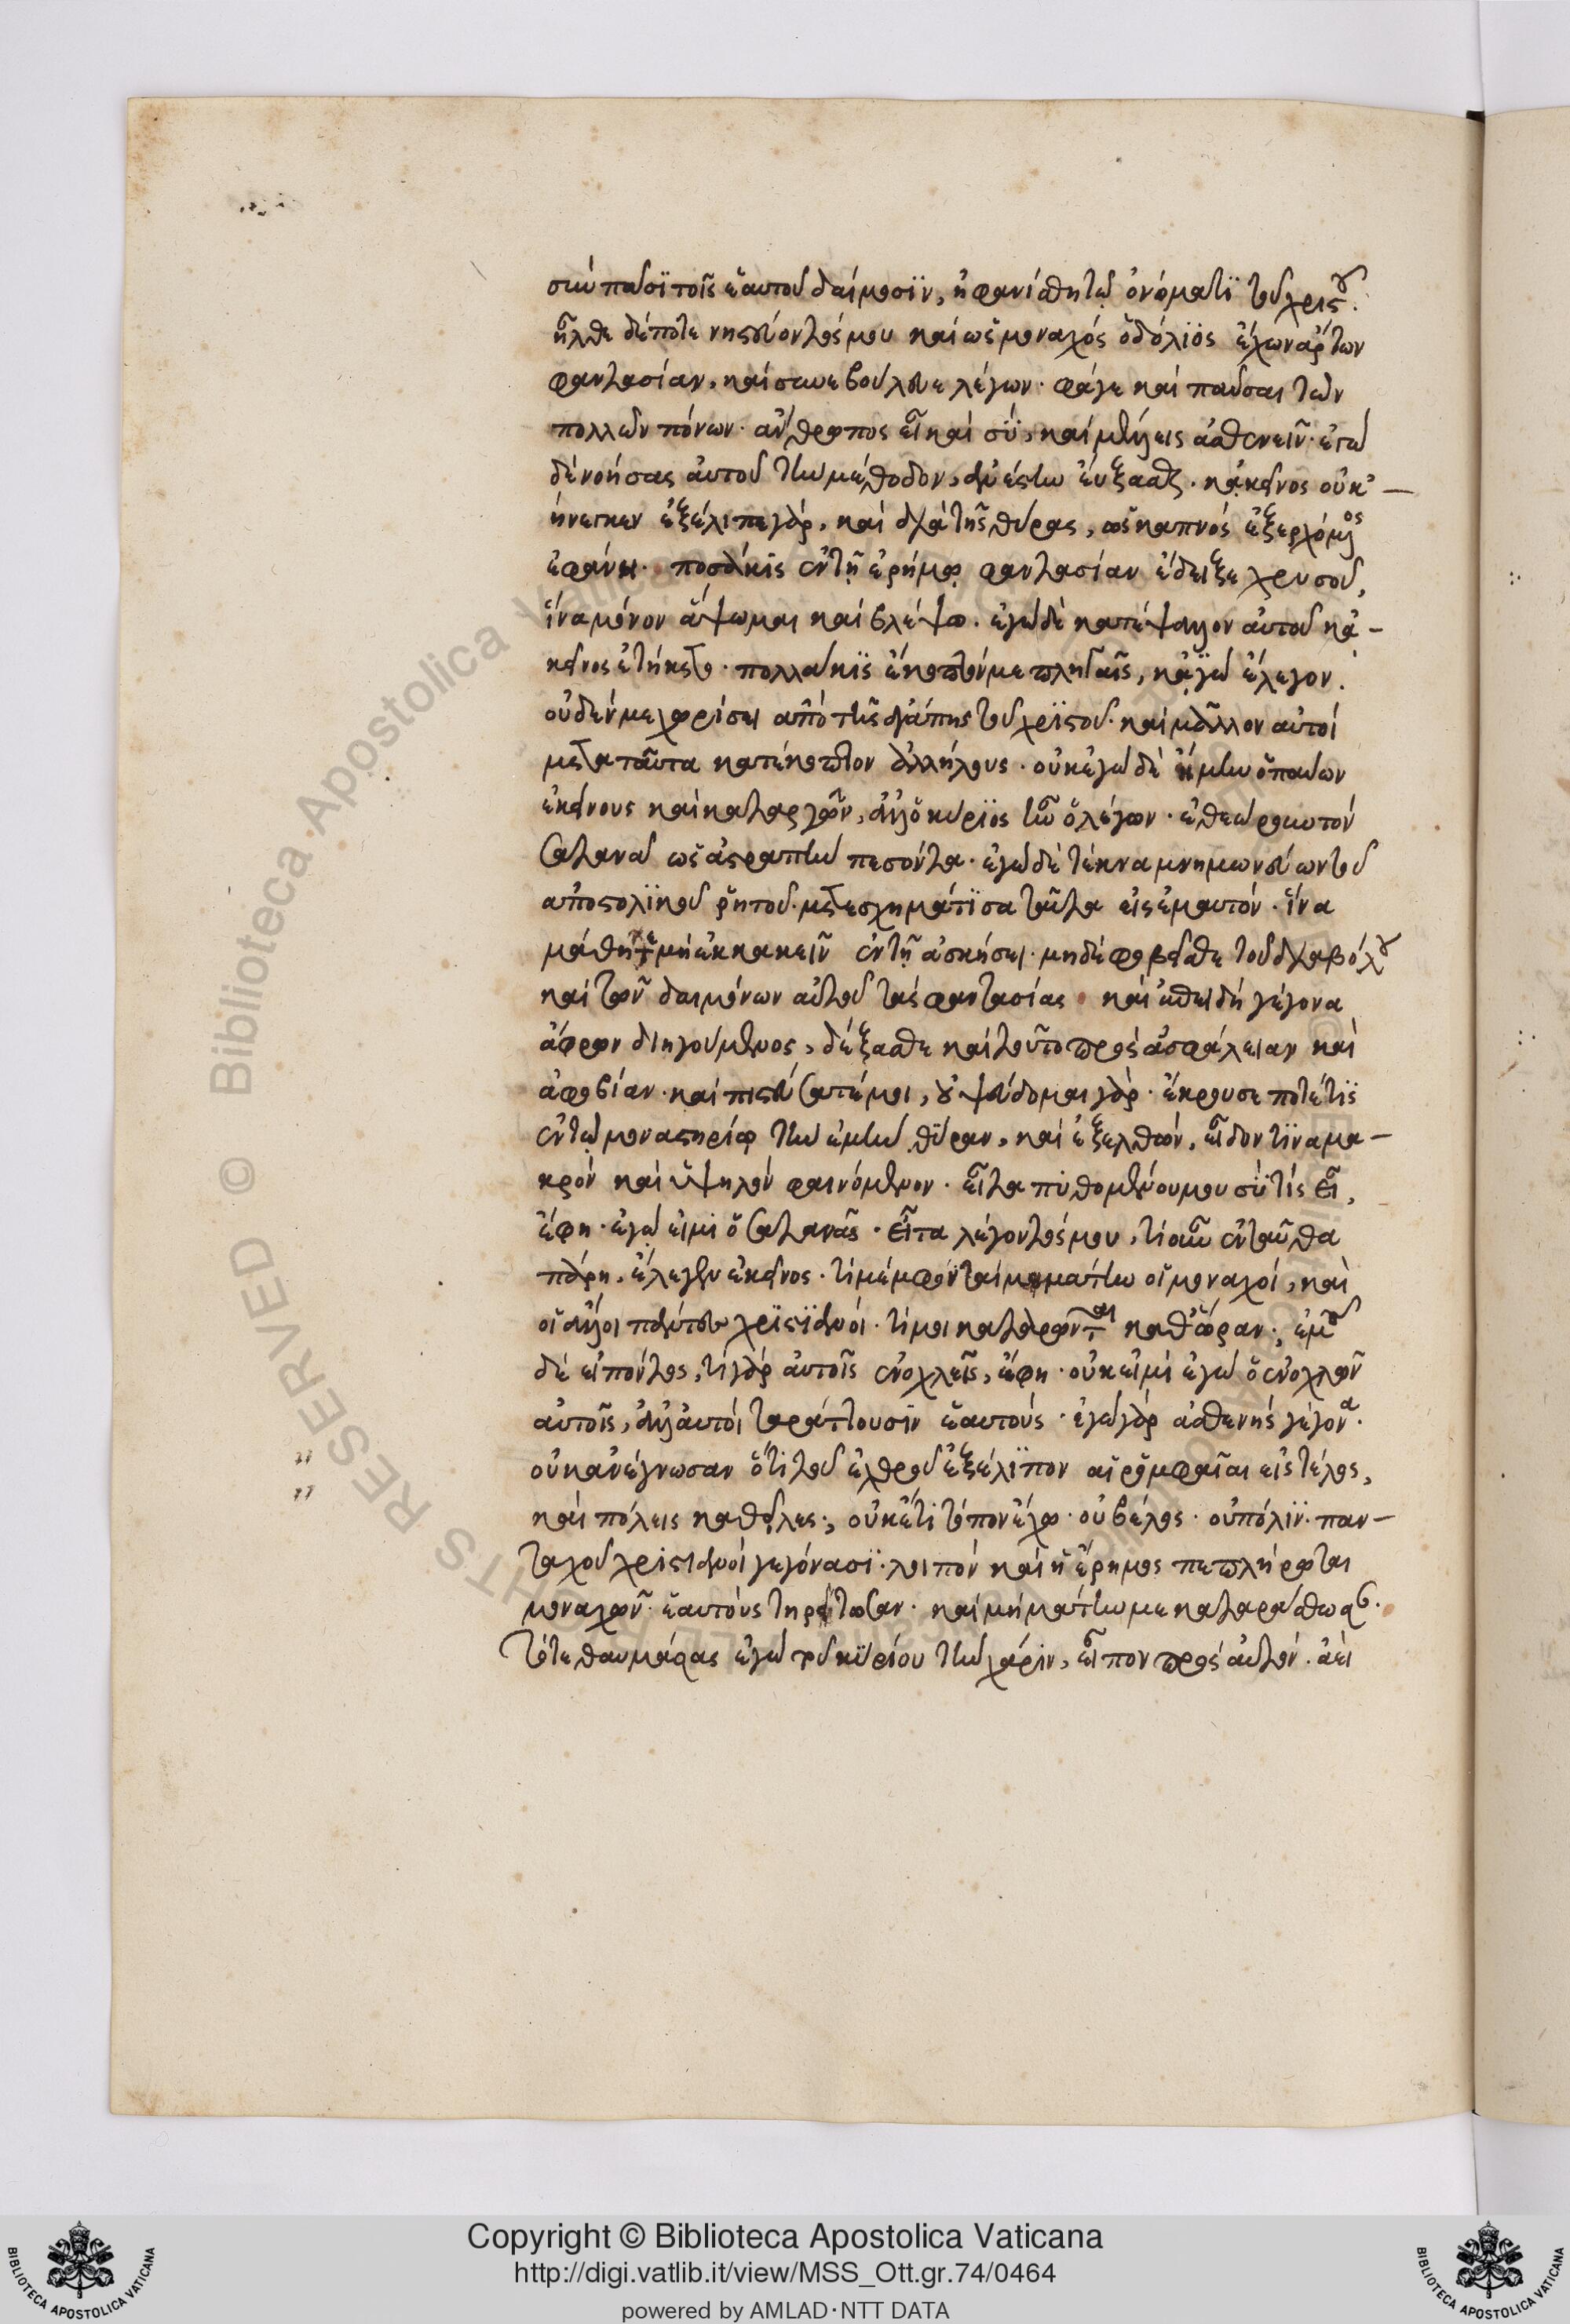 σὺν πᾶσϊ τοῖς ἑαυτοῦ δαίμοσϊν, ἠφανίσθη τῷ ὀνόματϊ τοῦ χριστοῦ.
ἦλθε δέ ποτε νηστεύοντός μου καὶ ὡς μοναχός ὁ δόλϊος ἔχων ἄρτων
φαντασίαν, καὶ συνεβούλευε λέγων· φάγε καὶ παῦσαι τῶν
πολλῶν πόνων· ἄνθρωπος εἶ καὶ σὺ, καὶ μέλλεις ἀσθενεῖν· ἐγὼ
δὲ νοήσας αὐτοῦ τὴν μέθοδον, ἀνέστην εὔξασθαι· κἀκεῖνος οὐκ
ἤνεγκεν ἐξέλιπε γὰρ, καὶ διὰ τῆς θύρας, ὡς καπνός ἐξερχόμενος
ἐφάνη· ποσάκις ἐν τῇ ἐρήμῳ φαντασίαν ἔδειξε χρυσοῦ,
ἵνα μόνον ἅψωμαι καὶ βλέψω. ἐγὼ δὲ κατέψαλλον αὐτοῦ κἀ-
κεῖνος ἐτήκετο· πολλάκϊς ἔκοπτόν με πληγαῖς, κἀγὼ ἔλεγον.
οὐδέν με χωρίσει ἀπὸ τῆς ἀγάπης τοῦ χρϊστοῦ· καὶ μᾶλλον αὐτοί
μετὰ ταῦτα κατέκοπτον ἀλλήλους· οὐκ ἐγὼ δὲ ἤμην ὁ παύων
ἐκείνους καὶ καταργῶν, ἀλλ' ὁ κύρϊος ἦν ὁ λέγων· ἐθεώρουν τόν
σατανᾶν ὡς ἀστραπὴν πεσόντα· ἐγὼ δὲ τέκνα μνημονεύων τοῦ
ἀποστολϊκοῦ ῥητοῦ· μετεσχημάτϊσα ταῦτα εἰς ἐμαυτόν· ἵνα
μάθητε μὴ ἐκκακεῖν ἐν τῇ ἀσκήσει· μηδὲ φοβεῖσθε τοῦ διαβόλου
καὶ τῶν δαιμόνων αὐτοῦ τάς φαντασίας· καὶ ἐπειδὴ γέγονα
ἄφρων διηγούμενος, δέξασθε καὶ τοῦτο πρός ἀσφάλειαν καὶ
ἀφοβίαν· καὶ πιστεύσατέ μοι, οὐ ψεύδομαι γάρ· ἔκρουσε ποτέ τϊς
ἐν τῷ μοναστηρίῳ τὴν ἐμὴν θύραν, καὶ ἐξελθών, εἶδον τϊνα μα-
κρόν καὶ ὑψηλόν φαινόμενον· εἶτα πυθομένου μου σὺ τίς εἶ,
ἔφη· ἐγώ εἰμι ὁ σατανᾶς· εἶτα λέγοντός μου, τί οὖν ἐνταῦθα
πάρει, ἔλεγεν ἐκεῖνος· τί μέμφονταί με μάτην οἱ μοναχοί, καὶ
οἱ ἄλλοι πάντες χρϊστϊανοί· τί μοι καταρῶνται καθ' ὥραν; ἐμοῦ
δὲ εἰπόντος, τί γὰρ αὐτοῖς ἐνοχλεῖς, ἔφη· οὐκ εἰμὶ ἐγὼ ὁ ἐνοχλῶν
αὐτοῖς, ἀλλ' αὐτοί ταράττουσϊν ἑαυτούς· ἐγὼ γὰρ ἀσθενής γέγονα.
οὐκ ἀνέγνωσαν ὅτι τοῦ ἐχθροῦ ἐξέλϊπον αἱ ῥομφαῖαι εἰς τέλος,
καὶ πόλεις καθεῖλες; οὐκέτι τόπον ἔχω· οὐ βέλος· οὐ πόλϊν· παν-
ταχοῦ χριστιανοί γεγόνασϊ· λοιπόν καὶ ἡ ἔρημος πεπλήρωται
μοναχῶν· ἑαυτοὺς τηρείτωσαν· καὶ μὴ μάτην με καταράσθωσαν.
τότε θαυμάσας ἐγὼ τοῦ κϋρίου τὴν χάριν, εἶπον πρός αὐτόν· ἀεὶ
Copyright © Biblioteca Apostolica Vaticana
http://digi.vatlib.it/view/MSS_Ott.gr.74/0464
powered by AMLAD·NTT DATA